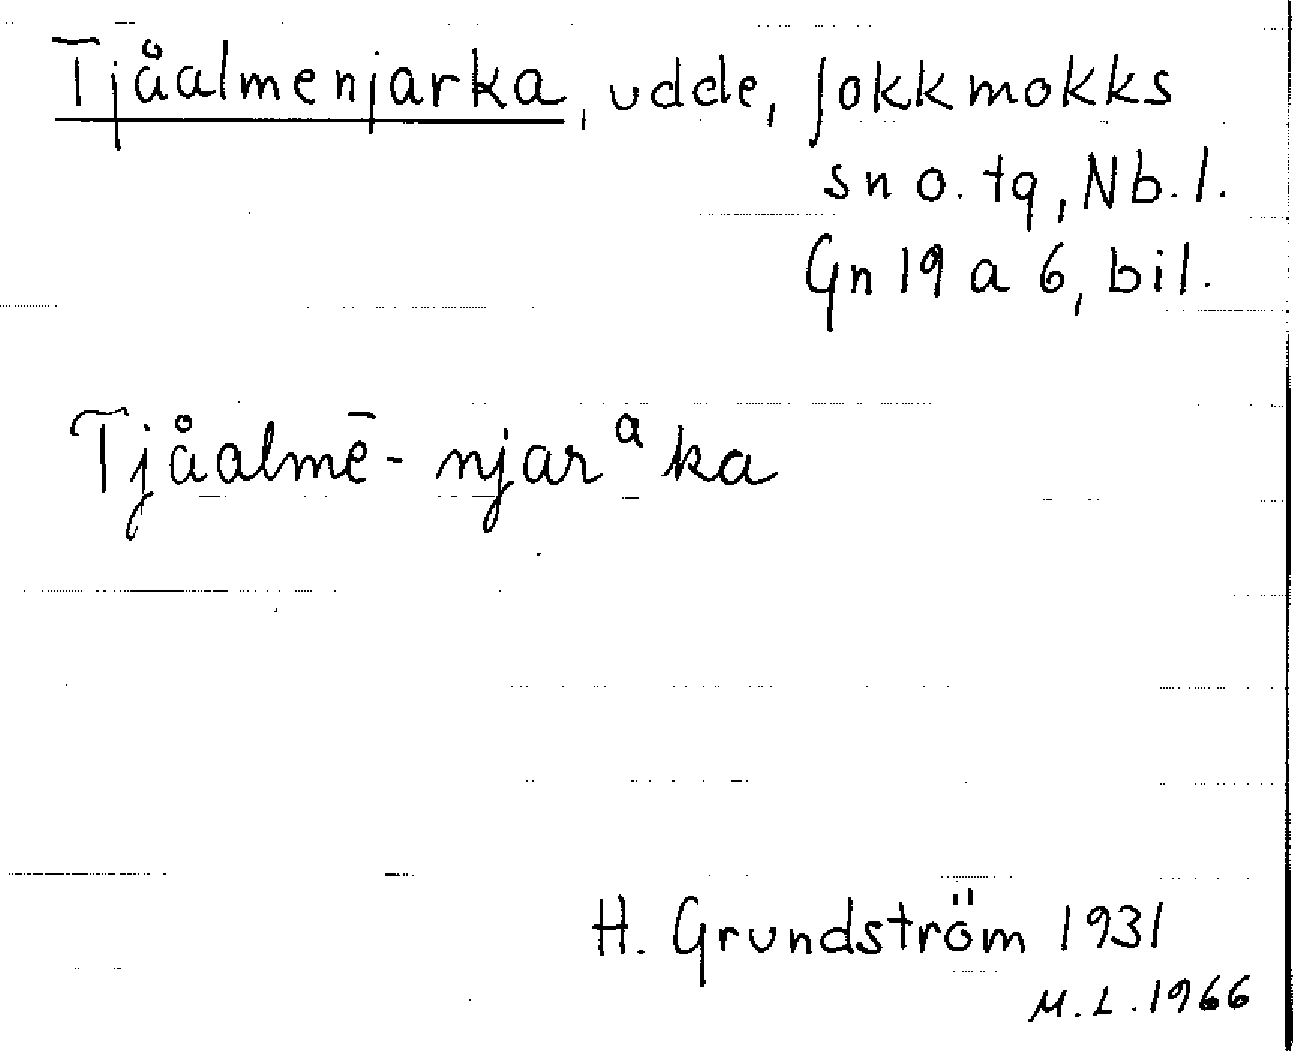 Tjåalmenjarka, udde, Jokkmokks
sn o. tg, Nb. l.
Gn 19 a 6, bil.
Tjåalmē-njarᵃka
H. Grundström 1931
M.L. 1966